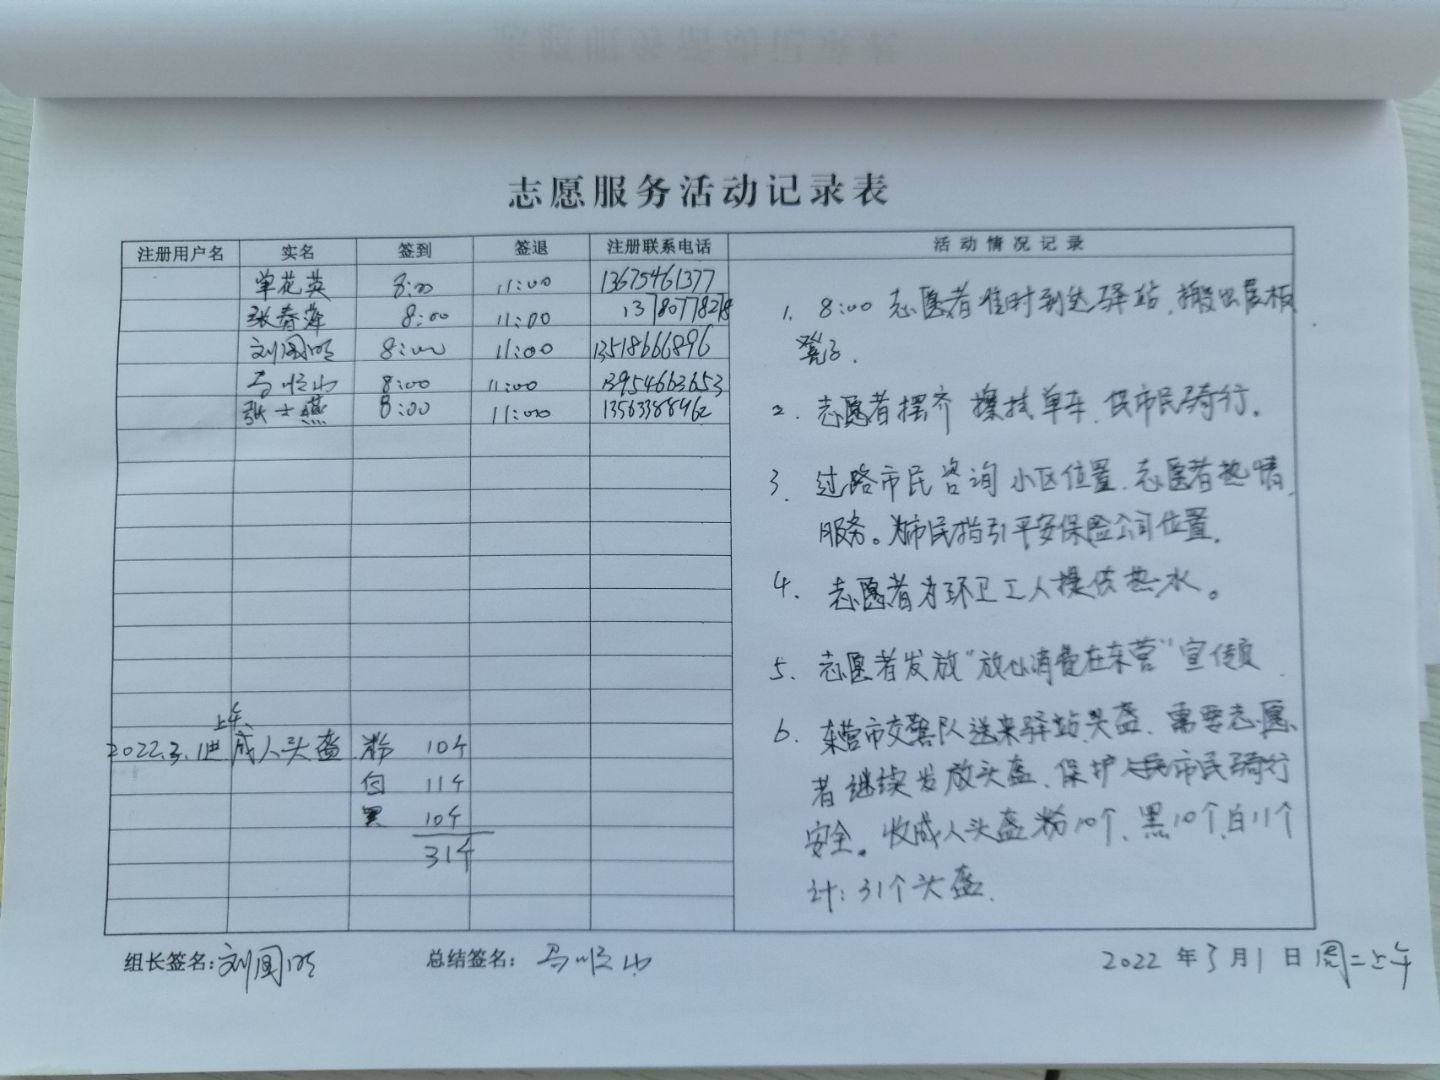 志愿服务活动记录表
注册用户名 实名 签到 签退 注册联系电话 活动情况记录
单花英 8:00 11:00 13675461377
张春萍 8:00 11:00 13780778278
刘国明 8:00 11:00 13518666896
马顺山 8:00 11:00 13954663653
张士燕 8:00 11:00
1. 8:00 志愿者准时到达驿站,搬出展板
凳子.
2. 志愿者摆齐 擦拭单车,供市民骑行.
3. 过路市民咨询小区位置,志愿者热情
服务。为市民指引平安保险公司位置.
4. 志愿者为环卫工人提供热水。
5. 志愿者发放"放心消费在东营"宣传页
6. 东营市交警队送来驿站头盔,需要志愿
者继续发放头盔,保护 市民骑行
安全。收成人头盔粉10个,黑10个,白11个
计:31个头盔.
上午
2022.3.1进成人头盔 粉 10个
白 11个
黑 10个
31个
组长签名:刘国明 总结签名:马顺山 2022年3月1日周二上午